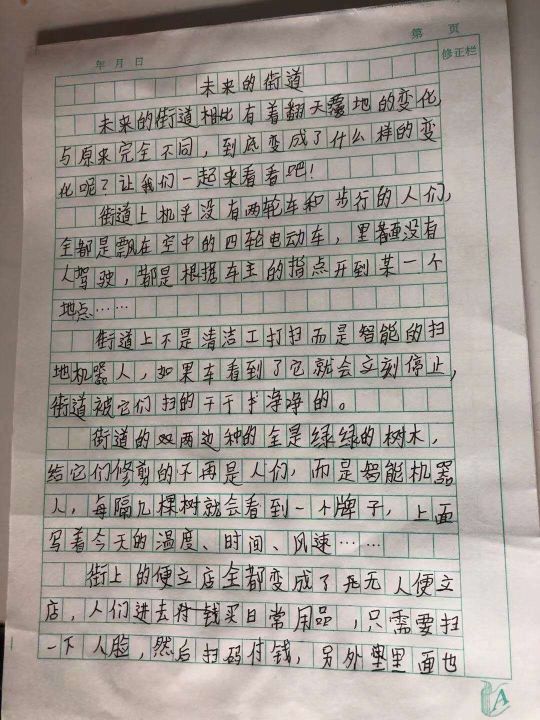 第 页
年 月 日
修正栏
未来的街道
未来的街道相比有着翻天覆地的变化,
与原来完全不同，到底变成了什么样的变
化呢？让我们一起来看看吧！
街道上机乎没有两轮车和步行的人们,
全都是飘在空中的四轮电动车，里面没有
人驾驶，都是根据车主的指点开到某一个
地点……
街道上不是清洁工打扫而是智能的扫
地机器人，如果车看到了它就会立刻停止,
街道被它们扫的干干净净的。
街道的两边种的全是绿绿的树木,
给它们修剪的不再是人们，而是智能机器
人，每隔九棵树就会看到一个牌子，上面
写着今天的温度、时间、风速……
街上的便立店全都变成了无人便立
店，人们进去付钱买日常用品，只需要扫
一下人脸，然后扫码付钱，另外里面也